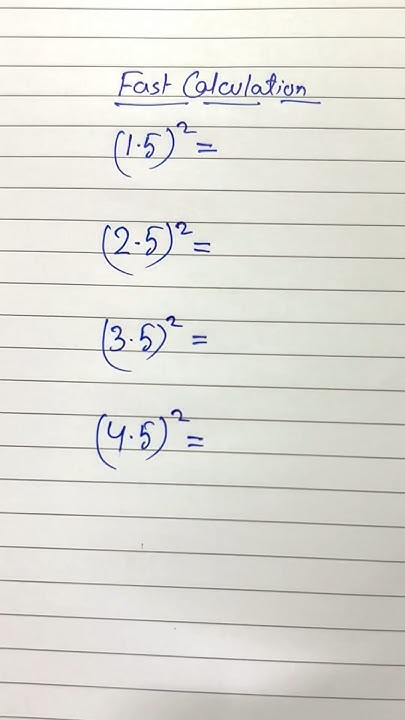 Fast Calculation
(1.5)² =
(2.5)² =
(3.5)² =
(4.5)² =